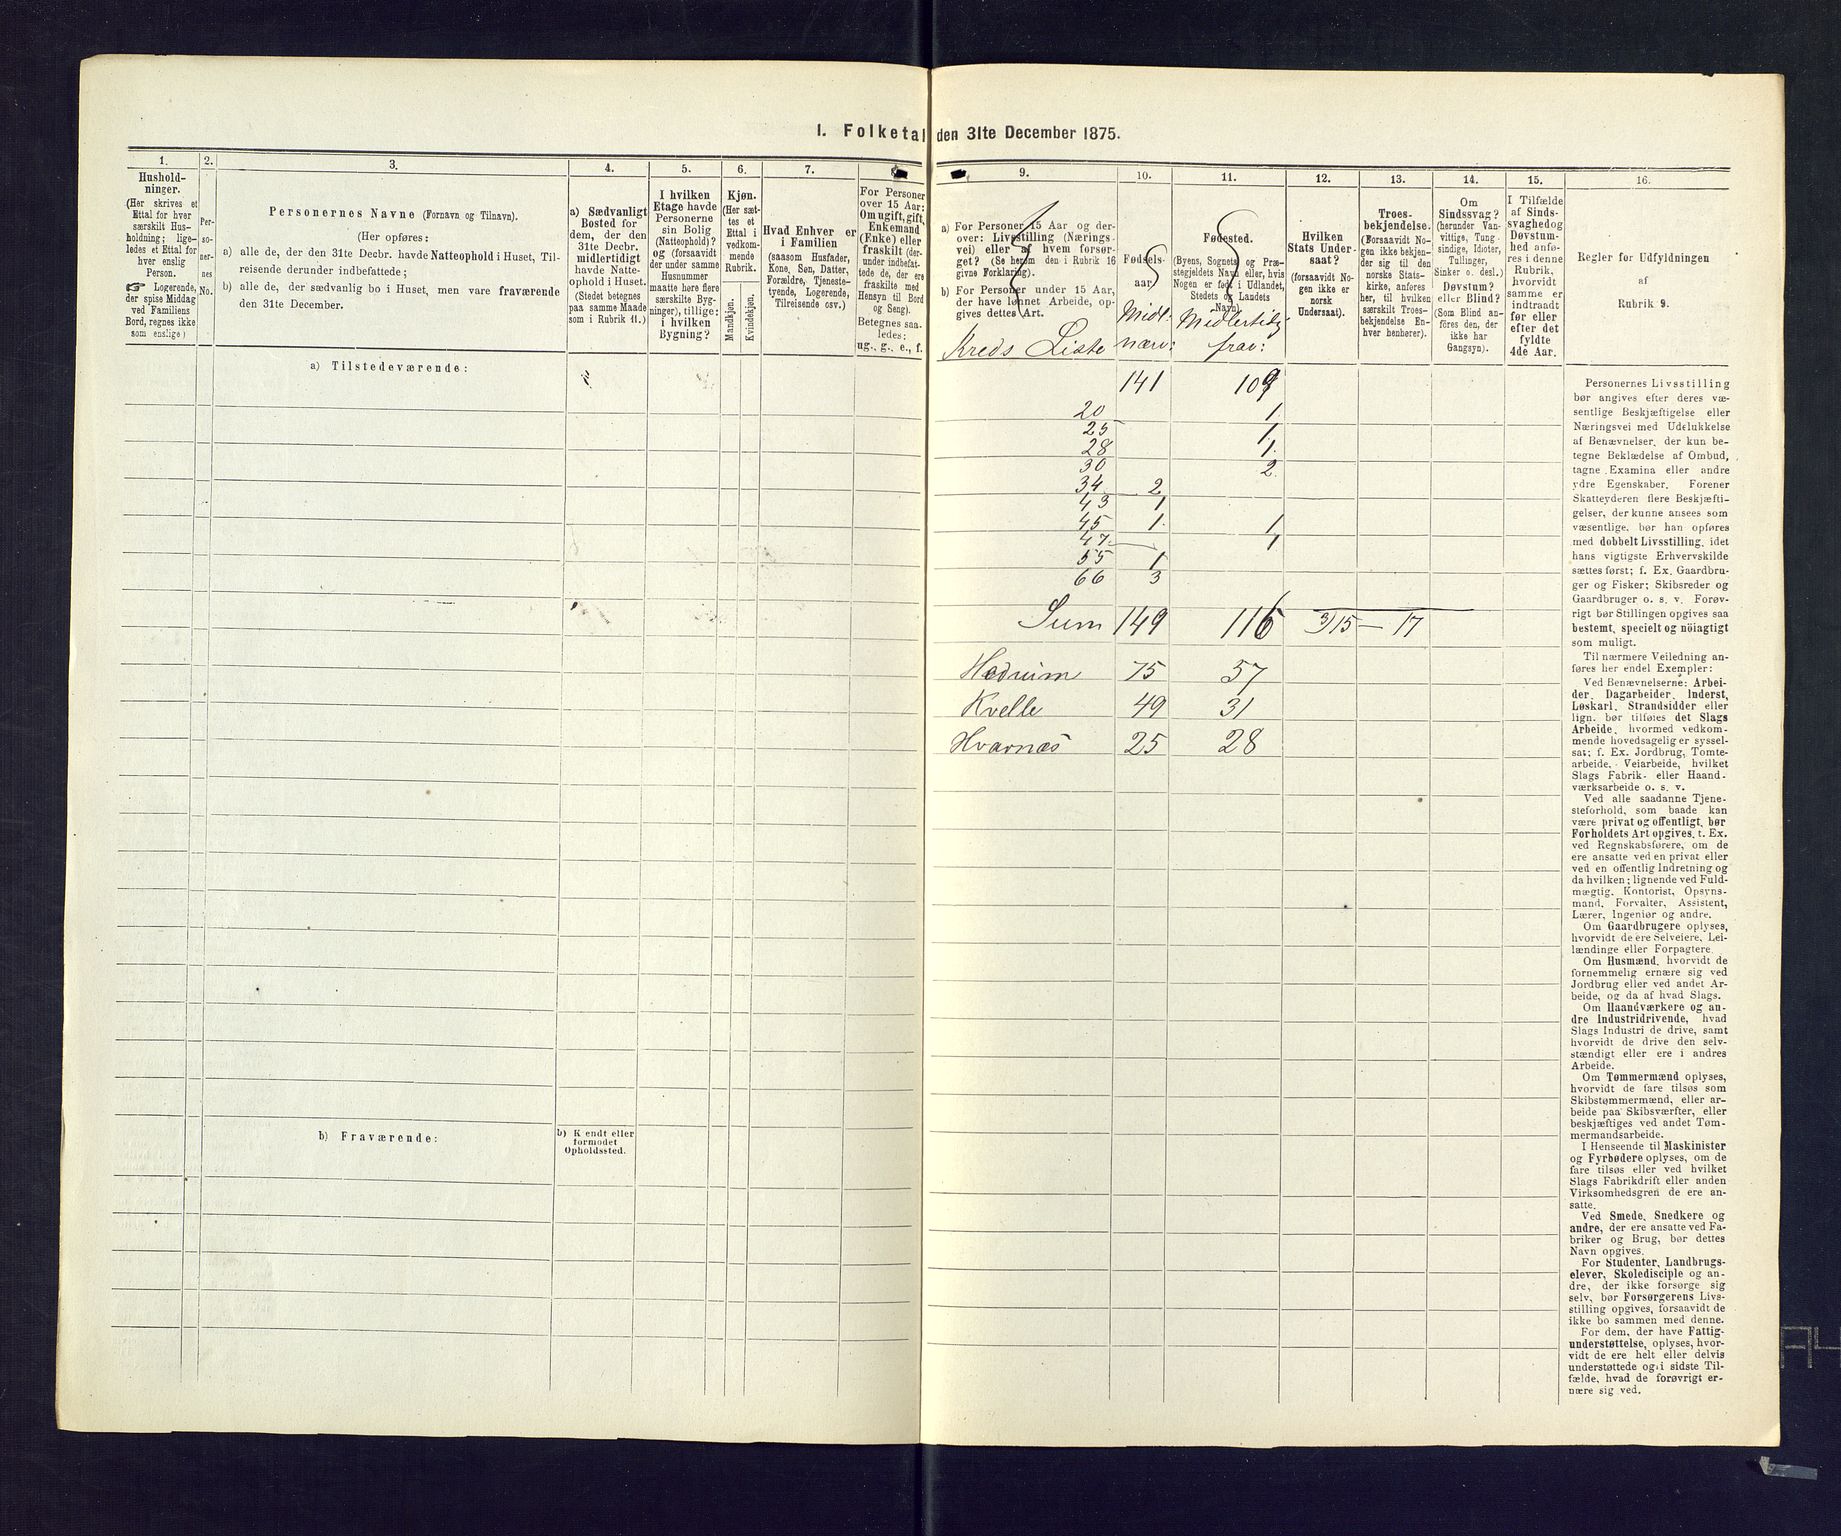 I. Folketal den 31te December 1875.
1.
Hushold-
ninger.
(Her skrives et
Ettal for hver
særskilt Hus-
holdning; lige-
ledes et Ettal for
hver enslig
Person.
☞ Logerende,
der spise Middag
ved Familiens
Bord, regnes ikke
som enslige)
2.
Per-
so-
ner-
nes
No.
3.
Personernes Navne (Fornavn og Tilnavn).
(Her opføres:
a) alle de, der den 31te Decbr. havde Natteophold i Huset, Til-
reisende derunder indbefattede;
b) alle de, der sædvanlig bo i Huset, men vare fraværende
den 31te December.
4.
a) Sædvanligt
Bosted for
dem, der den
31te Decbr.
midlertidigt
havde Natte-
ophold i Huset.
(Stedet betegnes
paa samme Maade
som i Rubrik 11.)
5.
I hvilken
Etage havde
Personerne
sin Bolig
(Natteophold)?
og (forsaavidt
der under samme
Husnummer
maatte høre flere
særskilte Byg-
ninger), tillige:
i hvilken
Bygning?
6.
Kjøn.
(Her sæt-
tes et
Ettal i
vedkom-
mende
Rubrik.
Mandkjøn.
Kvindekjøn.
7.
Hvad Enhver er
i Familien
(saasom Husfader,
Kone, Søn, Datter,
Forældre, Tjeneste-
tyende, Logerende,
Tilreisende osv.)
For Personer
over 15 Aar:
Om ugift, gift,
Enkemand
(Enke) eller
fraskilt (der-
under indbefat-
tede de, der ere
fraskilte med
Hensyn til Bord
og Seng).
Betegnes saa-
ledes:
ug., g., e., f.
9.
a) For Personer 15 Aar og der-
over: Livsstilling (Nærings-
vei) eller af hvem forsør-
get? (Se herom den i Rubrik 16
givne Forklaring).
b) For Personer under 15 Aar,
der have lønnet Arbeide, op-
gives dettes Art.
Kreds Liste
10.
Fødsels-
aar.
Midl:
nærv:
11.
Fødested.
(Byens, Sognets og Præ-
stegjeldets Navn eller, hvis
Nogen er født i Udlandet,
Stedets og Landets
Navn).
Midlertidg
frav:
12.
Hvilken
Stats Under-
saat?
(forsaavidt No-
gen ikke er
norsk
Undersaat).
13.
Troes-
bekjendelse.
(Forsaavidt No-
gen ikke bekjen-
der sig til den
norske Stats-
kirke, anføres
her, til hvilken
særskilt Troes-
bekjendelse En-
hver henhører).
14.
Om
Sindssvag?
(herunder Van-
vittige, Tung-
sindige, Idioter,
Tullinger,
Sinker o. desl.)
Døvstum?
eller Blind?
(Som Blind an-
føres den, der
ikke har
Gangsyn).
15.
I Tilfælde
af Sinds-
svaghed og
Døvstum-
hed anfø-
res i denne
Rubrik,
hvorvidt
samme er
indtraadt
før eller
efter det
fyldte
4de Aar.
16.
Regler for Udfyldningen
af
Rubrik 9.
a) Tilstedeværende:
141 109
20 1
25 1
28 1
30 2
34 2
43 1
45 1 1
47 1
55 1
66 3
Sum 149 116 3/15 — 17
Hedrum 75 57
Kvelle 49 31
Hvarnæs 25 28
b) Fraværende:
b) Kendt eller
formodet
Opholdssted.
Personernes Livsstilling
bør angives efter deres væ-
sentlige Beskjæftigelse eller
Næringsvei med Udelukkelse
af Benævnelser, der kun be-
tegne Beklædelse af Ombud,
tagne Examina eller andre
ydre Egenskaber. Forener
Skatteyderen flere Beskjæfti-
gelser, der kunne ansees som
væsentlige, bør han opføres
med dobbelt Livsstilling, idet
hans vigtigste Erhvervskilde
sættes først; f. Ex. Gaardbru-
ger og Fisker; Skibsreder og
Gaardbruger o. s. v. Forøv-
rigt bør Stillingen opgives saa
bestemt, specielt og nöiagtigt
som muligt.
Til nærmere Veiledning an-
føres her endel Exempler:
Ved Benævnelserne: Arbei-
der, Dagarbeider, Inderst,
Løskarl, Strandsidder eller
lign. bør tilføies det Slags
Arbeide, hvormed vedkom-
mende hovedsagelig er syssel-
sat; f. Ex. Jordbrug, Tomte-
arbeide, Veiarbeide, hvilket
Slags Fabrik- eller Haand-
værksarbeide o. s. v.
Ved alle saadanne Tjene-
steforhold, som baade kan
være privat og offentligt, bør
Forholdets Art opgives, t. Ex.
ved Regnskabsførere, om de
ere ansatte ved en privat eller
ved en offentlig Indretning og
da hvilken; lignende ved Fuld-
mægtig, Kontorist, Opsyns-
mand, Forvalter, Assistent,
Lærer, Ingeniør og andre.
Om Gaardbrugere oplyses,
hvorvidt de ere Selveiere, Lei-
lændinge eller Forpagtere.
Om Husmænd, hvorvidt de
fornemmelig ernære sig ved
Jordbrug eller ved andet Ar-
beide, og da af hvad Slags.
Om Haandværkere og an-
dre Industridrivende, hvad
Slags Industri de drive, samt
hvorvidt de drive den selv-
stændigt eller ere i andres
Arbeide.
Om Tømmermænd oplyses,
hvorvidt de fare tilsøs som
Skibstømmermænd, eller ar-
beide paa Skibsværfter, eller
beskjæftiges ved andet Tøm-
mermandsarbeide.
I Henseende til Maskinister
og Fyrbødere oplyses, om de
fare tilsøs eller ved hvilket
Slags Fabrikdrift eller anden
Virksomhedsgren de ere an-
satte.
Ved Smede, Snedkere og
andre, der ere ansatte ved Fa-
briker og Brug, bør dettes
Navn opgives.
For Studenter, Landbrugs-
elever, Skoledisciple og an-
dre, der ikke forsørge sig
selv, bør Forsørgerens Livs-
stilling opgives, forsaavidt de
ikke bo sammen med denne.
For dem, der have Fattig-
understøttelse, oplyses, hvor-
vidt de ere helt eller delvis
understøttede og i sidste Til-
fælde, hvad de forøvrigt er-
nære sig ved.